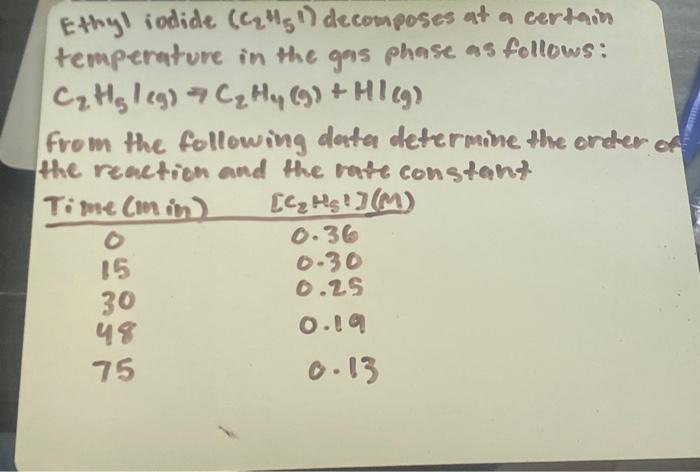 Ethyl iodide (C₂H₅I) decomposes at a certain
temperature in the gas phase as follows:
C₂H₅I(g) → C₂H₄(g) + HI(g)
From the following data determine the order of
the reaction and the rate constant
Time (min) [C₂H₅I](M)
0 0.36
15 0.30
30 0.25
48 0.19
75 0.13